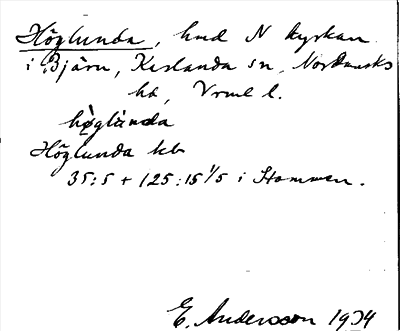 Höglunda, hmd N kyrkan
i Bjärn, Kirlanda sn, Nordmarks
hd, Vrml l.
hø̀glùnda
Höglunda kb
35:5 + 125:15 1/5 i Stommen.
E. Andersson 1934